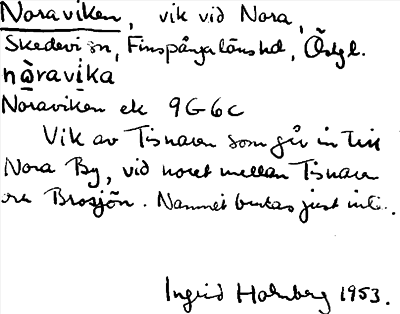 Noraviken, vik vid Nora,
Skedevi sn, Finspånga länshd, Östgl.
nòravika
Noraviken ek 9G6c
Vik av Tisnaren som går in till
Nora By, vid noret mellan Tisnaren
Brosjön. Namnet brukas just inte.
Ingrid Holmberg 1953.